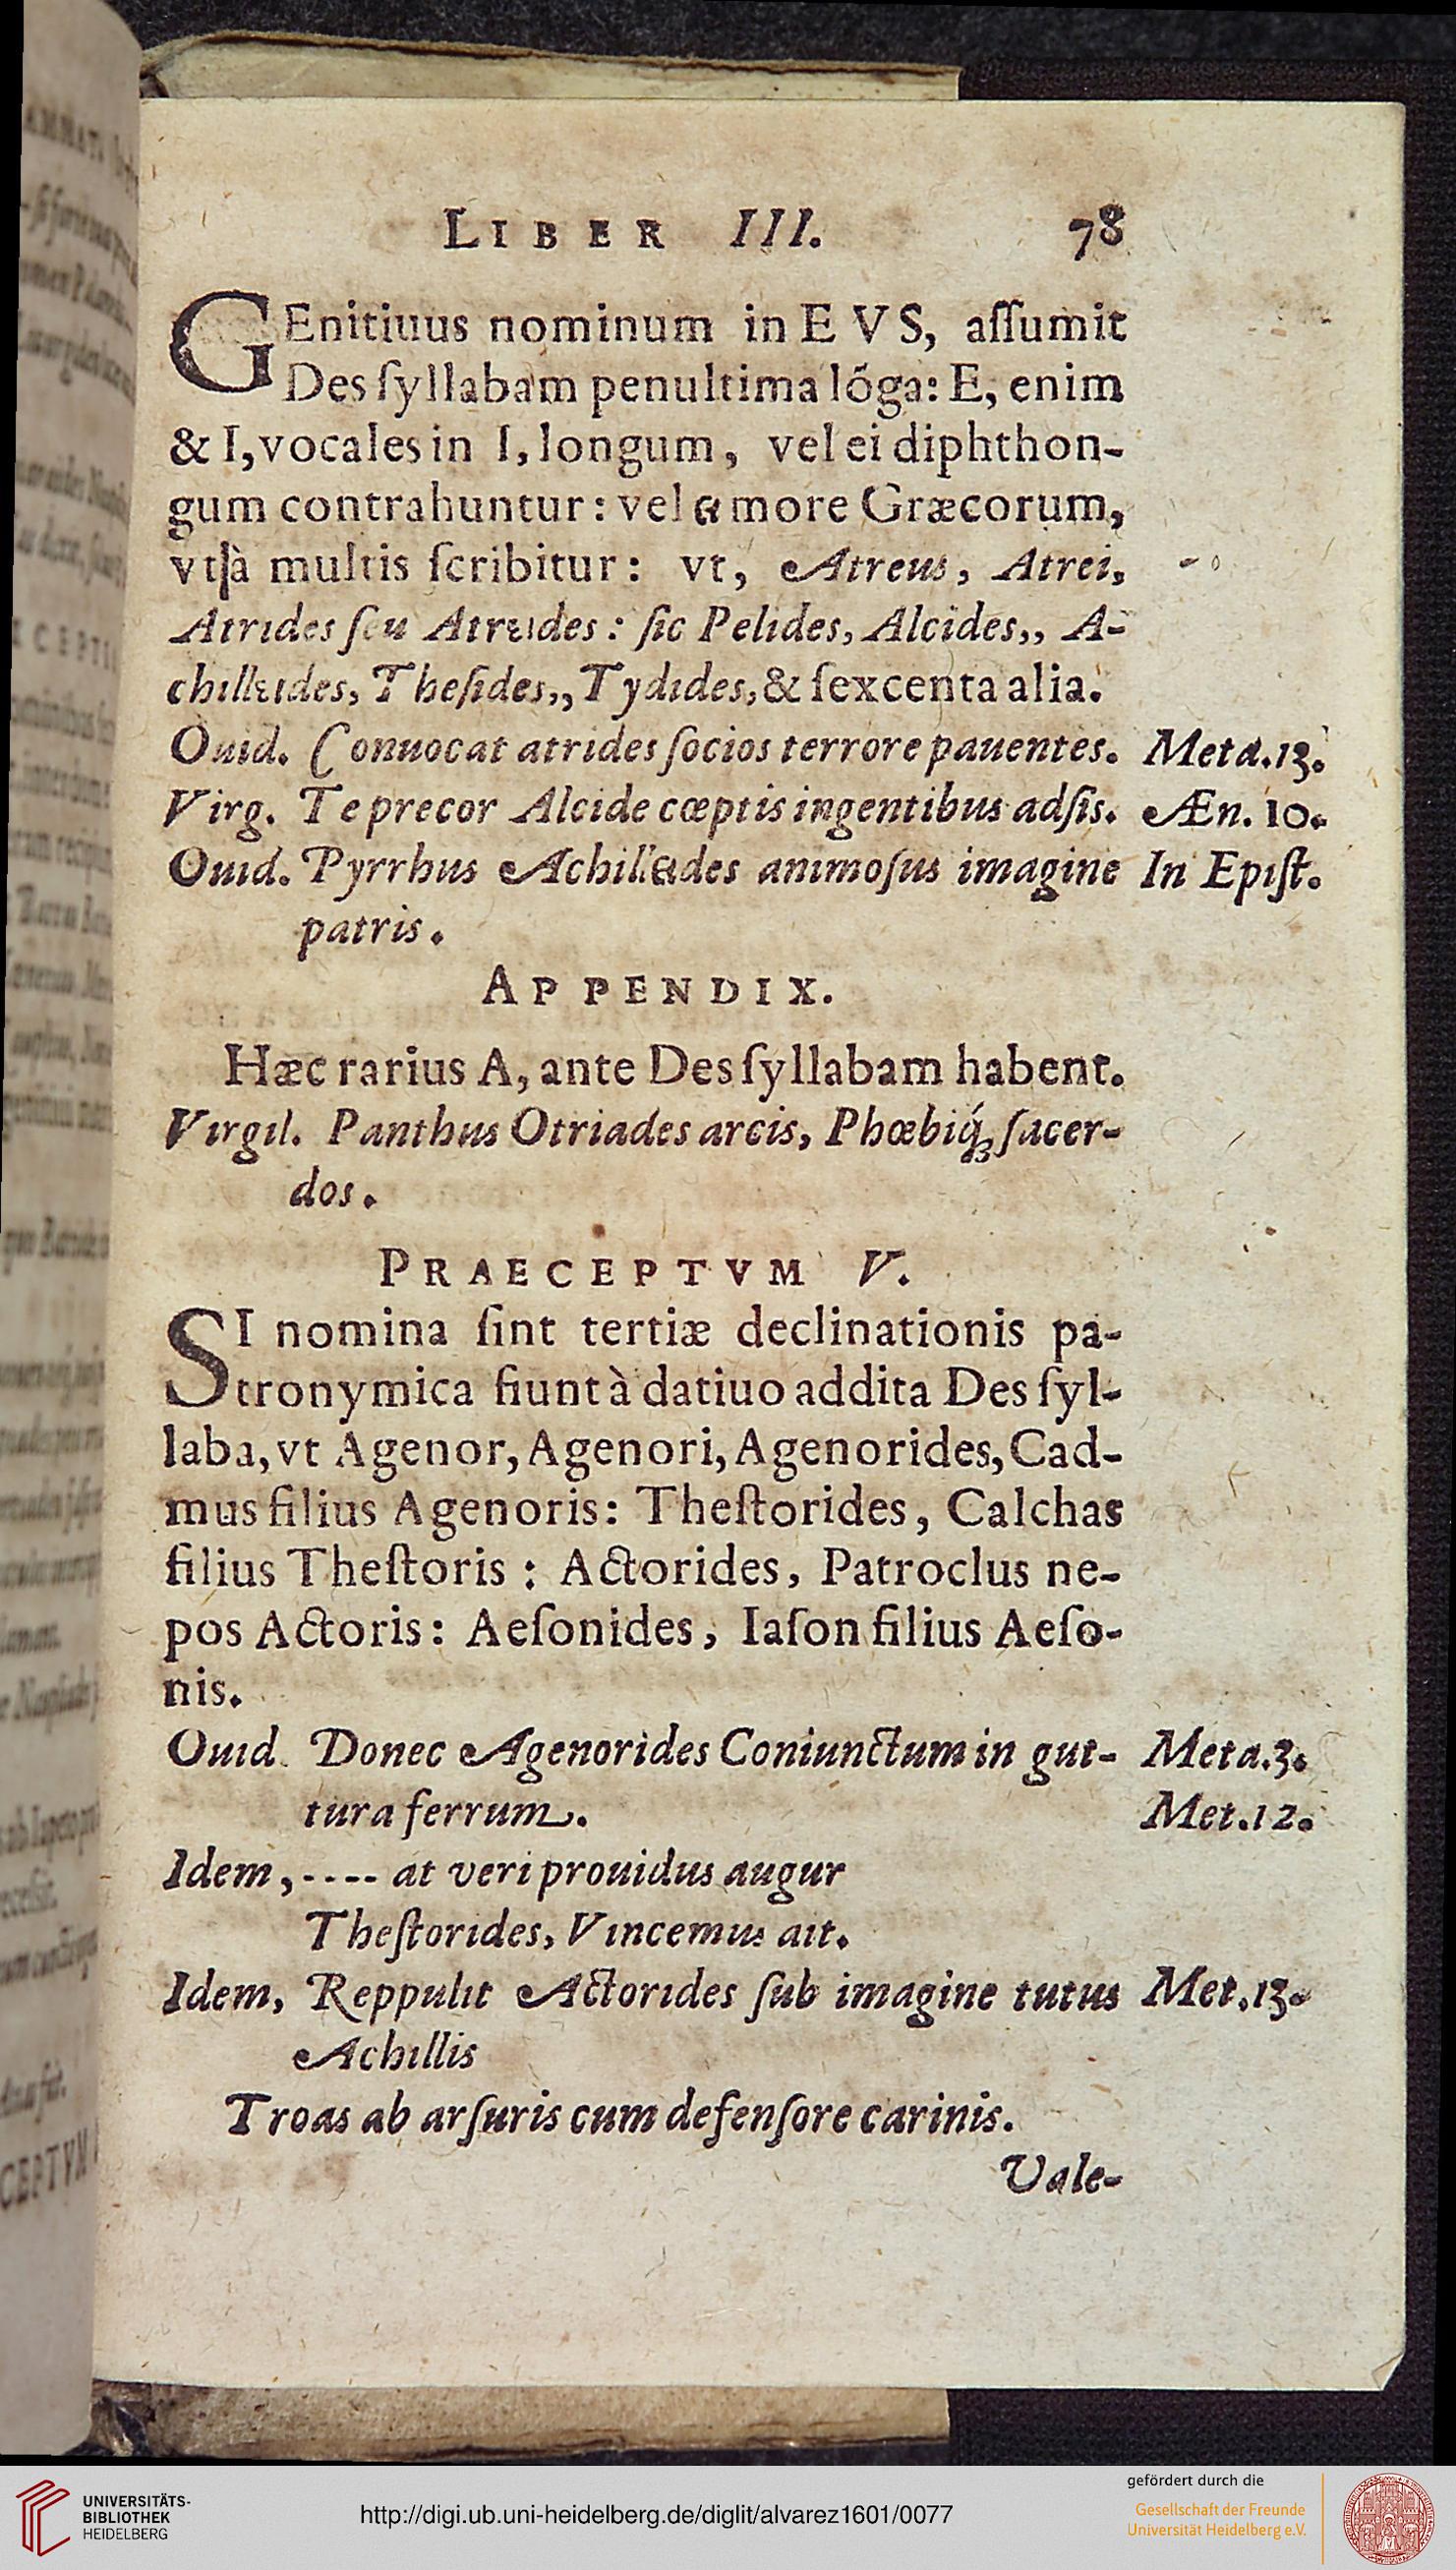 LIBER III. 78
GEnitiuus nominum in EVS, aſſumit
Des ſyllabam penultima lõga: E, enim
& I, vocales in I, longum, vel ei diphthon-
gum contrahuntur: vel ει more Græcorum,
vt à multis ſcribitur: vt, Atreus, Atrei,
Atrides ſeu Atreides: ſic Pelides, Alcides,, A-
chilleides, Theſides,, Tydides, & ſexcenta alia.
Ouid. Conuocat atrides ſocios terrore pauentes. Meta.13.
Virg. Te precor Alcide cœptis ingentibus adſis. Æn. 10.
Ouid. Pyrrhus Achilleides animoſus imagine In Epiſt.
patris.
APPENDIX.
Hæc rarius A, ante Des ſyllabam habent.
Virgil. Panthus Otriades arcis, Phœbiq́; ſacer-
dos.
PRAECEPTVM V.
SI nomina ſint tertiæ declinationis pa-
tronymica fiunt à datiuo addita Des ſyl-
laba, vt Agenor, Agenori, Agenorides, Cad-
mus filius Agenoris: Theſtorides, Calchas
filius Theſtoris: Actorides, Patroclus ne-
pos Actoris: Aeſonides, Iaſon filius Aeſo-
nis.
Ouid. Donec Agenorides Coniunctum in gut- Meta.3.
tura ferrum. Met.12.
Idem, ---- at veri prouidus augur
Theſtorides, Vincemus ait.
Idem, Reppulit Actorides ſub imagine tutus Met.13.
Achillis
Troas ab arſuris cum defenſore carinis.
Vale-
UNIVERSITÄTS-
BIBLIOTHEK
HEIDELBERG
http://digi.ub.uni-heidelberg.de/diglit/alvarez1601/0077
gefördert durch die
Gesellschaft der Freunde
Universität Heidelberg e.V.